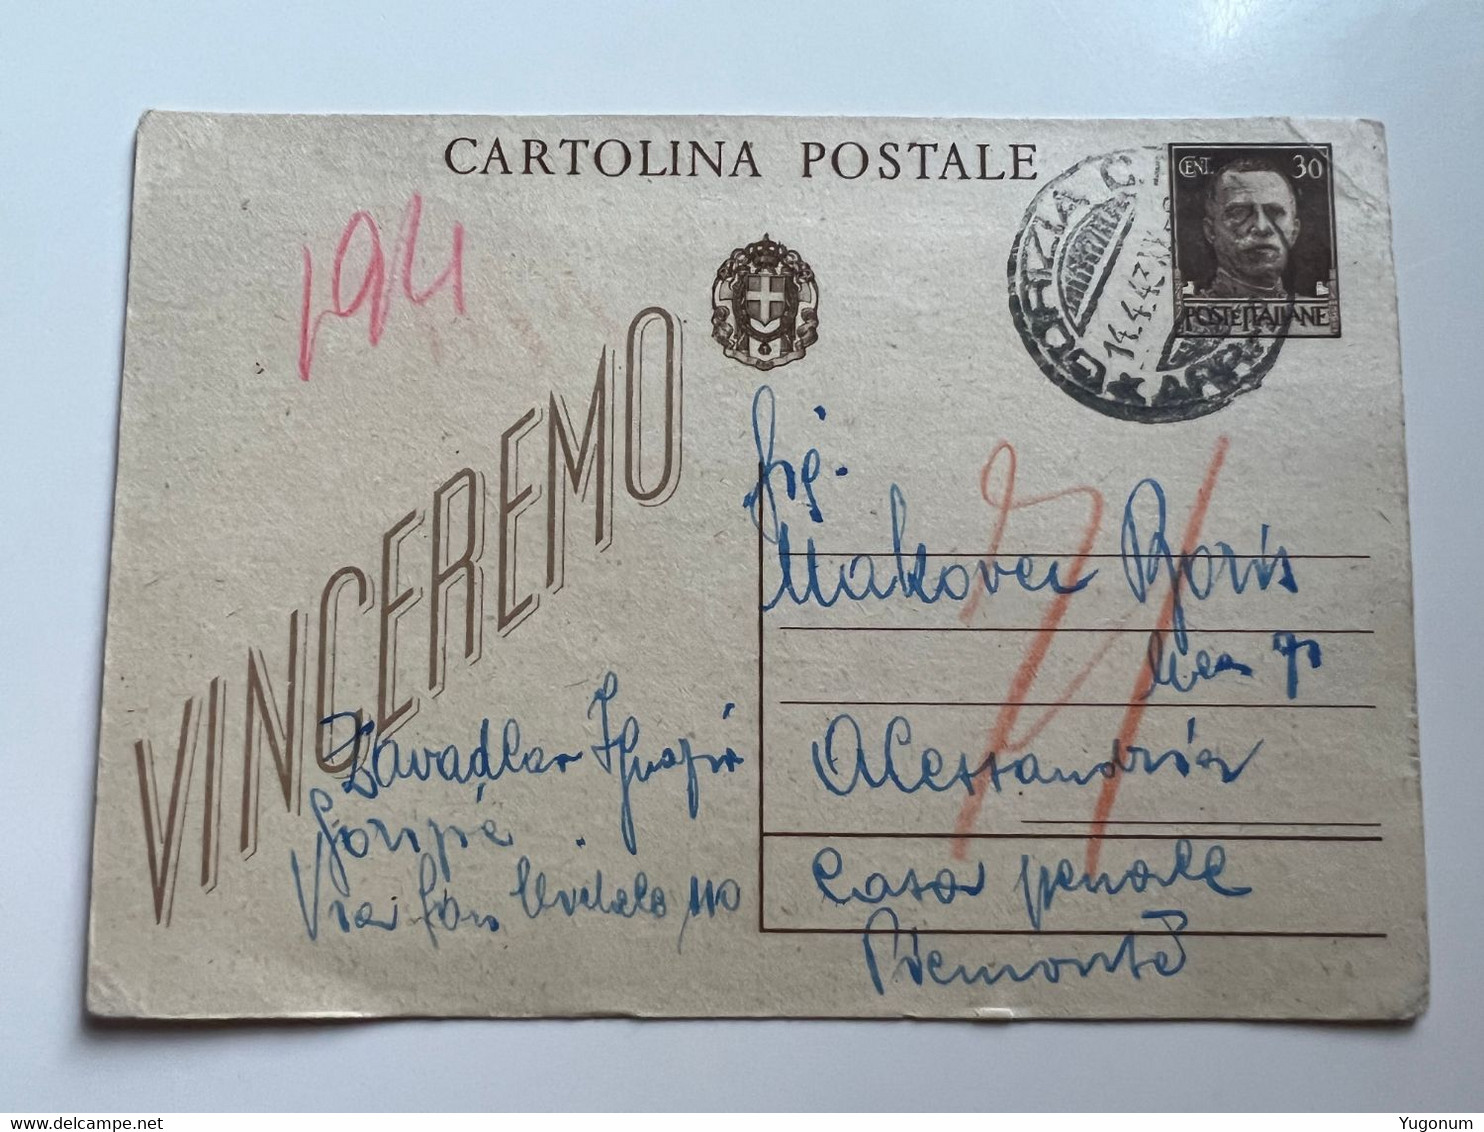 CARTOLINA POSTALE
CENT. 30
POSTE ITALIANE
GORIZIA
14.4.43
ARR
VINCEREMO
Sig.
Makovec Boris
Alessandria
Casa penale
Piemonte
Zavadlav
Via San 110
www.delcampe.net
Yugonum